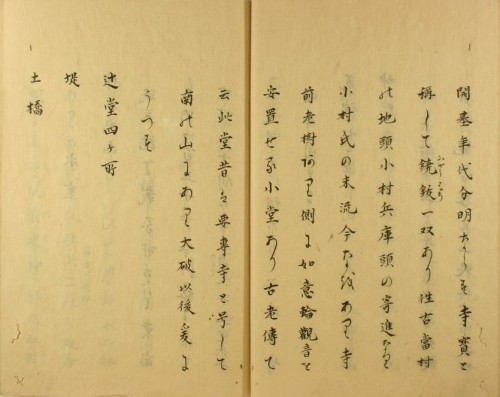 開基年代分明ならす寺寳と
称して鐃鈸一双あり往古當村
の地頭小村兵庫頭の寄進なり
小村氏の末流今なほあり寺
前老樹あり側に如意輪觀音を
安置せる小堂あり古老傳て
云此堂昔は要専寺と号して
南の山にあり大破以後爰に
うつす
辻堂四ヶ所
堤
土橋